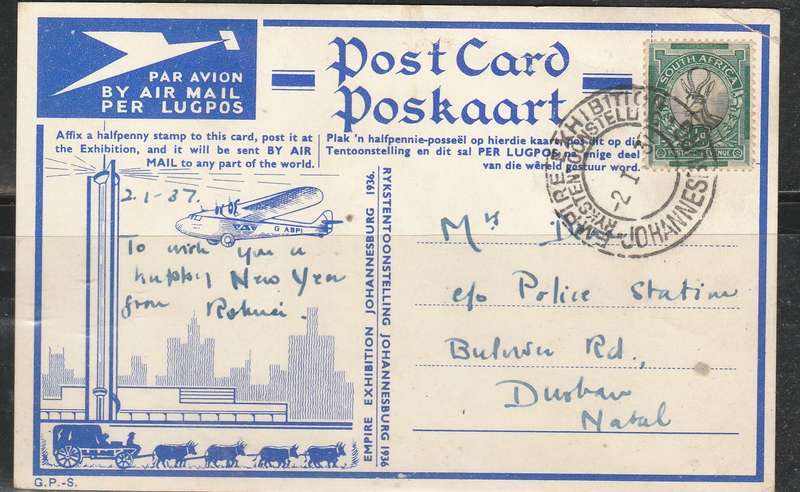 PAR AVION
BY AIR MAIL
PER LUGPOS
Post Card
Poskaart
SOUTH AFRICA
POSTAGE REVENUE
Affix a halfpenny stamp to this card, post it at
the Exhibition, and it will be sent BY AIR
MAIL to any part of the world.
Plak 'n halfpennie-posseël op hierdie kaart, pos dit op die
Tentoonstelling en dit sal PER LUGPOS na enige deel
van die wêreld gestuur word.
EMPIRE EXHIBITION
RYKSTENTOONSTELLING
JOHANNESBURG
2 I 37
2-1-37.
To wish you a
happy New Year
from
G ABPI
EMPIRE EXHIBITION JOHANNESBURG 1936.
RYKSTENTOONSTELLING JOHANNESBURG 1936
Mrs
c/o Police Station
Bulwer Rd,
Durban
Natal
G.P.-S.